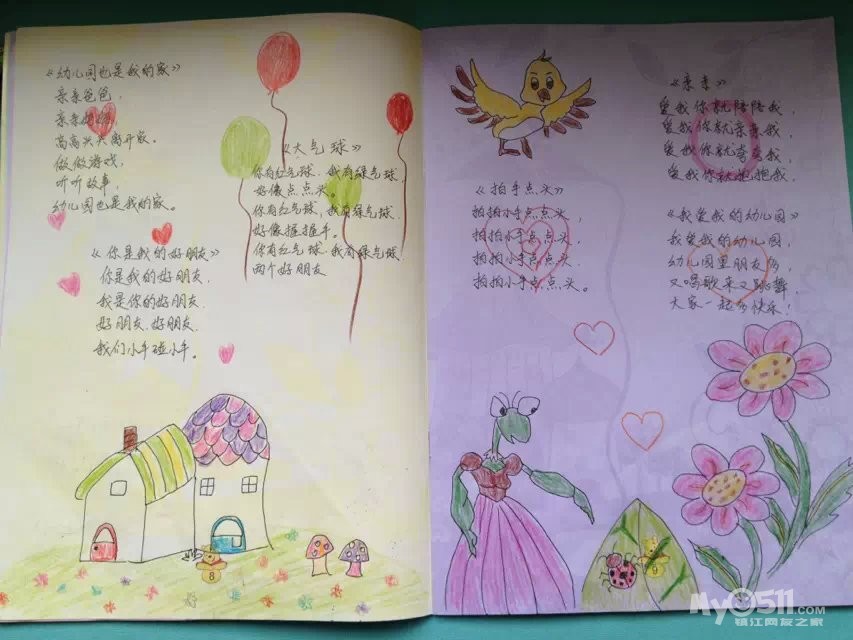 《幼儿园也是我的家》
亲亲爸爸，
亲亲妈妈，
高高兴兴离开家。
做做游戏，
听听故事，
幼儿园也是我的家。
《你是我的好朋友》
你是我的好朋友，
我是你的好朋友，
好朋友，好朋友，
我们小手碰小手。
《大气球》
你有红气球，我有绿气球，
好像点点头。
你有红气球，我有绿气球，
好像握握手。
你有红气球，我有绿气球，
两个好朋友
8
《拍手点头》
拍拍小手点点头，
拍拍小手点点头，
拍拍小手点点头，
拍拍小手点点头。
《亲亲》
爱我你就陪陪我，
爱我你就亲亲我，
爱我你就夸夸我，
爱我你就抱抱我。
《我爱我的幼儿园》
我爱我的幼儿园，
幼儿园里朋友多，
又唱歌来又跳舞，
大家一起多快乐！
My0511.com
镇江网友之家